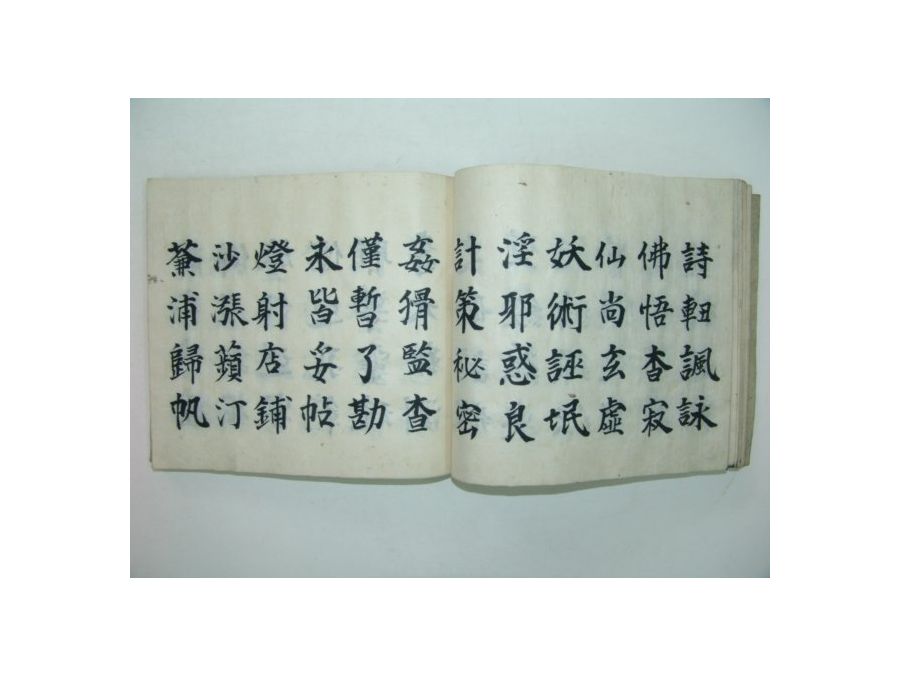 詩諷詠
佛悟杳寂
仙尚玄虛
妖術誣氓
淫耶惑良
計策秘密
姦猾監査
僅暫了勘
永皆妥帖
燈射店鋪
沙漲蘋汀
蒹浦歸帆